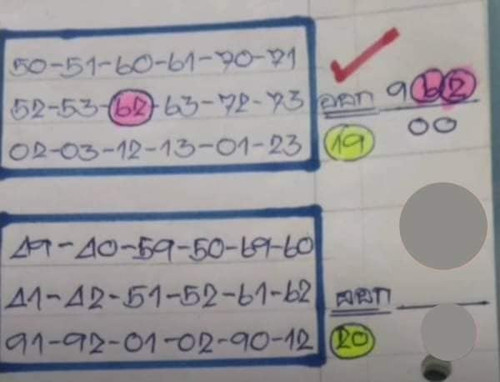 50-51-60-61-70-71
52-53-62-63-72-73 ออก 962
02-03-12-13-01-23 19 00
49-40-59-50-69-60
41-42-51-52-61-62 ออก
91-92-01-02-90-12 20